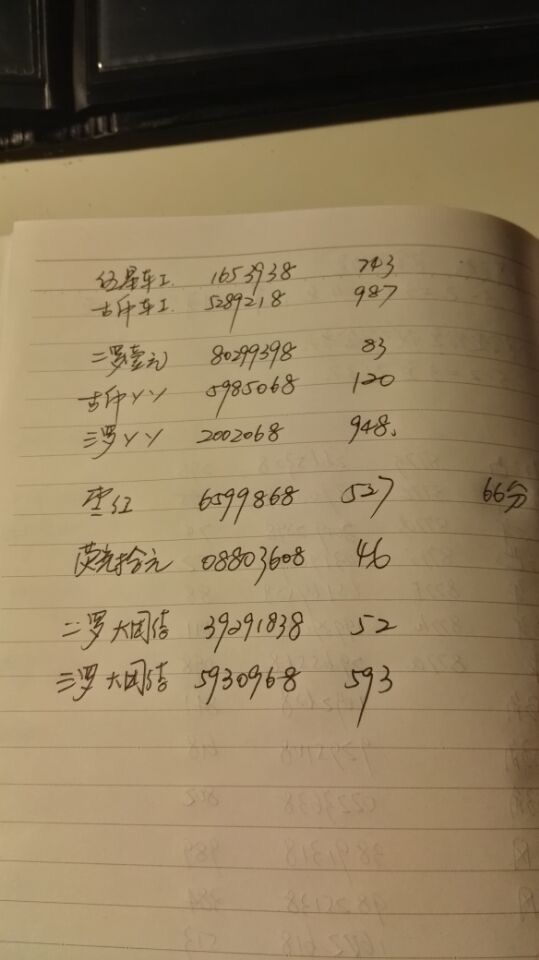 伍星车工 1653938 743
古币车工 5289218 987
二罗壹元 80299398 83
古币丫丫 5985068 120
三罗丫丫 2002068 948
枣红 6599868 527 66分
荧光拾元 08803608 46
二罗大团结 39291838 52
三罗大团结 5930968 593